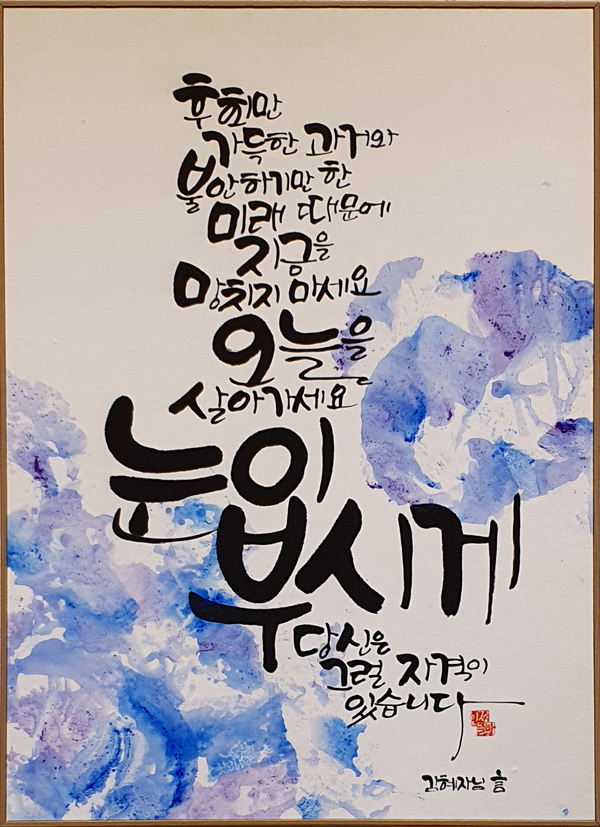 후회만
가득한 과거와
불안하기만 한
미래 때문에
지금을
망치지 마세요
오늘을
살아가세요
눈이
부시게
당신은
그럴 자격이
있습니다
김혜자님 言